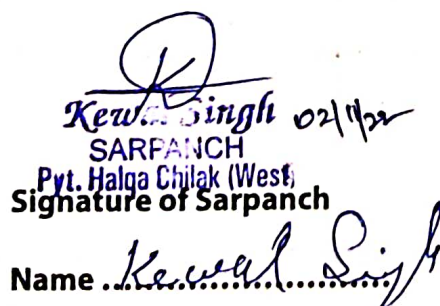 Kewal Singh 02/11/22
SARPANCH
Pyt. Halqa Chilak (West)
Signature of Sarpanch
Name ..Kewal Singh